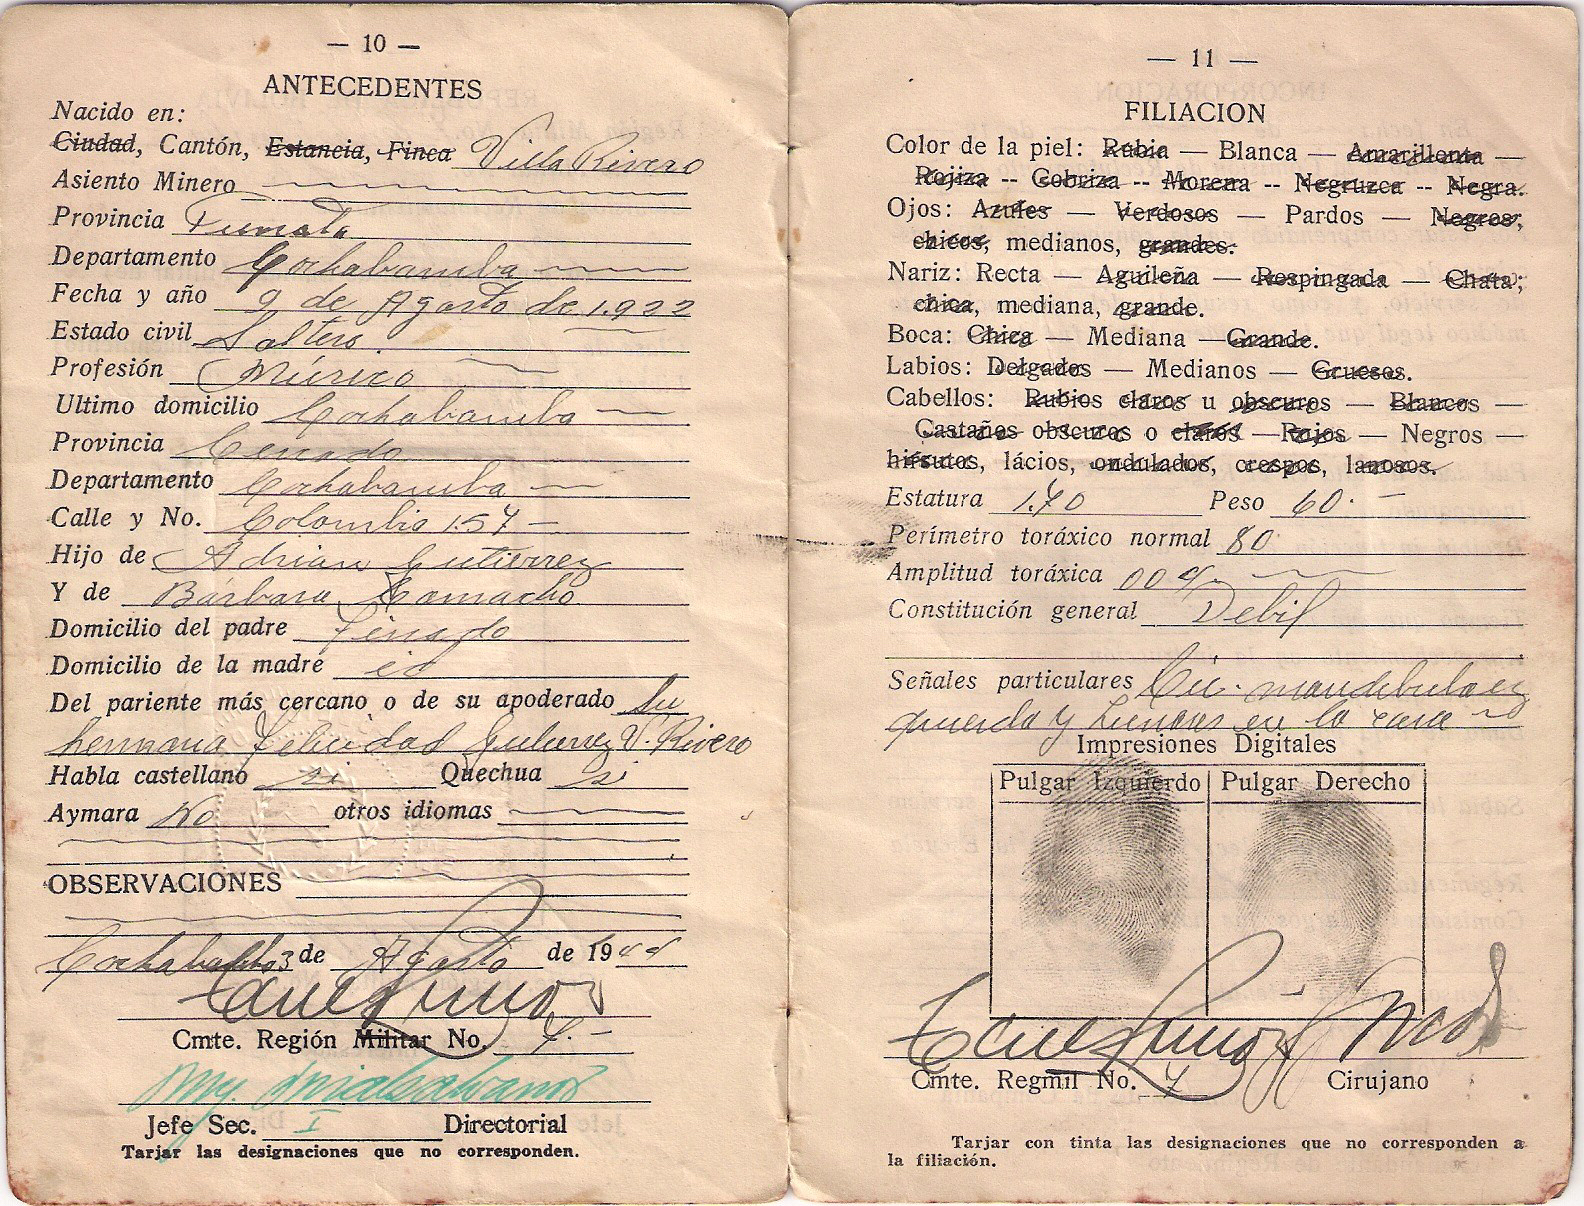 — 10 —
ANTECEDENTES
Nacido en:
Ciudad, Cantón, Estancia, Finca Villa Rivero
Asiento Minero
Provincia Punata
Departamento Cochabamba
Fecha y año 9 de Agosto de 1.922
Estado civil Soltero.
Profesión Músico
Ultimo domicilio Cochabamba
Provincia Cercado
Departamento Cochabamba
Calle y No. Colombia 157
Hijo de Adrian Gutierrez
Y de Bárbara Camacho
Domicilio del padre Finado
Domicilio de la madre id
Del pariente más cercano o de su apoderado Su
hermana Felicidad Gutierrez V. Rivero
Habla castellano si Quechua si
Aymara No otros idiomas
OBSERVACIONES
de Agosto de 1944
Cmte. Región Militar No. 7.
Jefe Sec. I Directorial
Tarjar las designaciones que no corresponden.
— 11 —
FILIACION
Color de la piel: Rubia — Blanca — Amarillenta —
Rojiza -- Cobriza -- Morena -- Negruzca -- Negra.
Ojos: Azules — Verdosos — Pardos — Negros;
chicos, medianos, grandes.
Nariz: Recta — Aguileña — Respingada — Chata;
chica, mediana, grande.
Boca: Chica — Mediana — Grande.
Labios: Delgados — Medianos — Gruesos.
Cabellos: Rubios claros u obscuros — Blancos —
Castaños obscuros o claros — Rojos — Negros —
hirsutos, lácios, ondulados, crespos, lanosos.
Estatura 1.70 Peso 60.
Perímetro toráxico normal 80
Amplitud toráxica
Constitución general Debil
Señales particulares Cic. mandibula iz
quierda y Lunares en la cara
Impresiones Digitales
Pulgar Izquierdo Pulgar Derecho
Cmte. Regmil No. 7 Cirujano
Tarjar con tinta las designaciones que no corresponden a
la filiación.